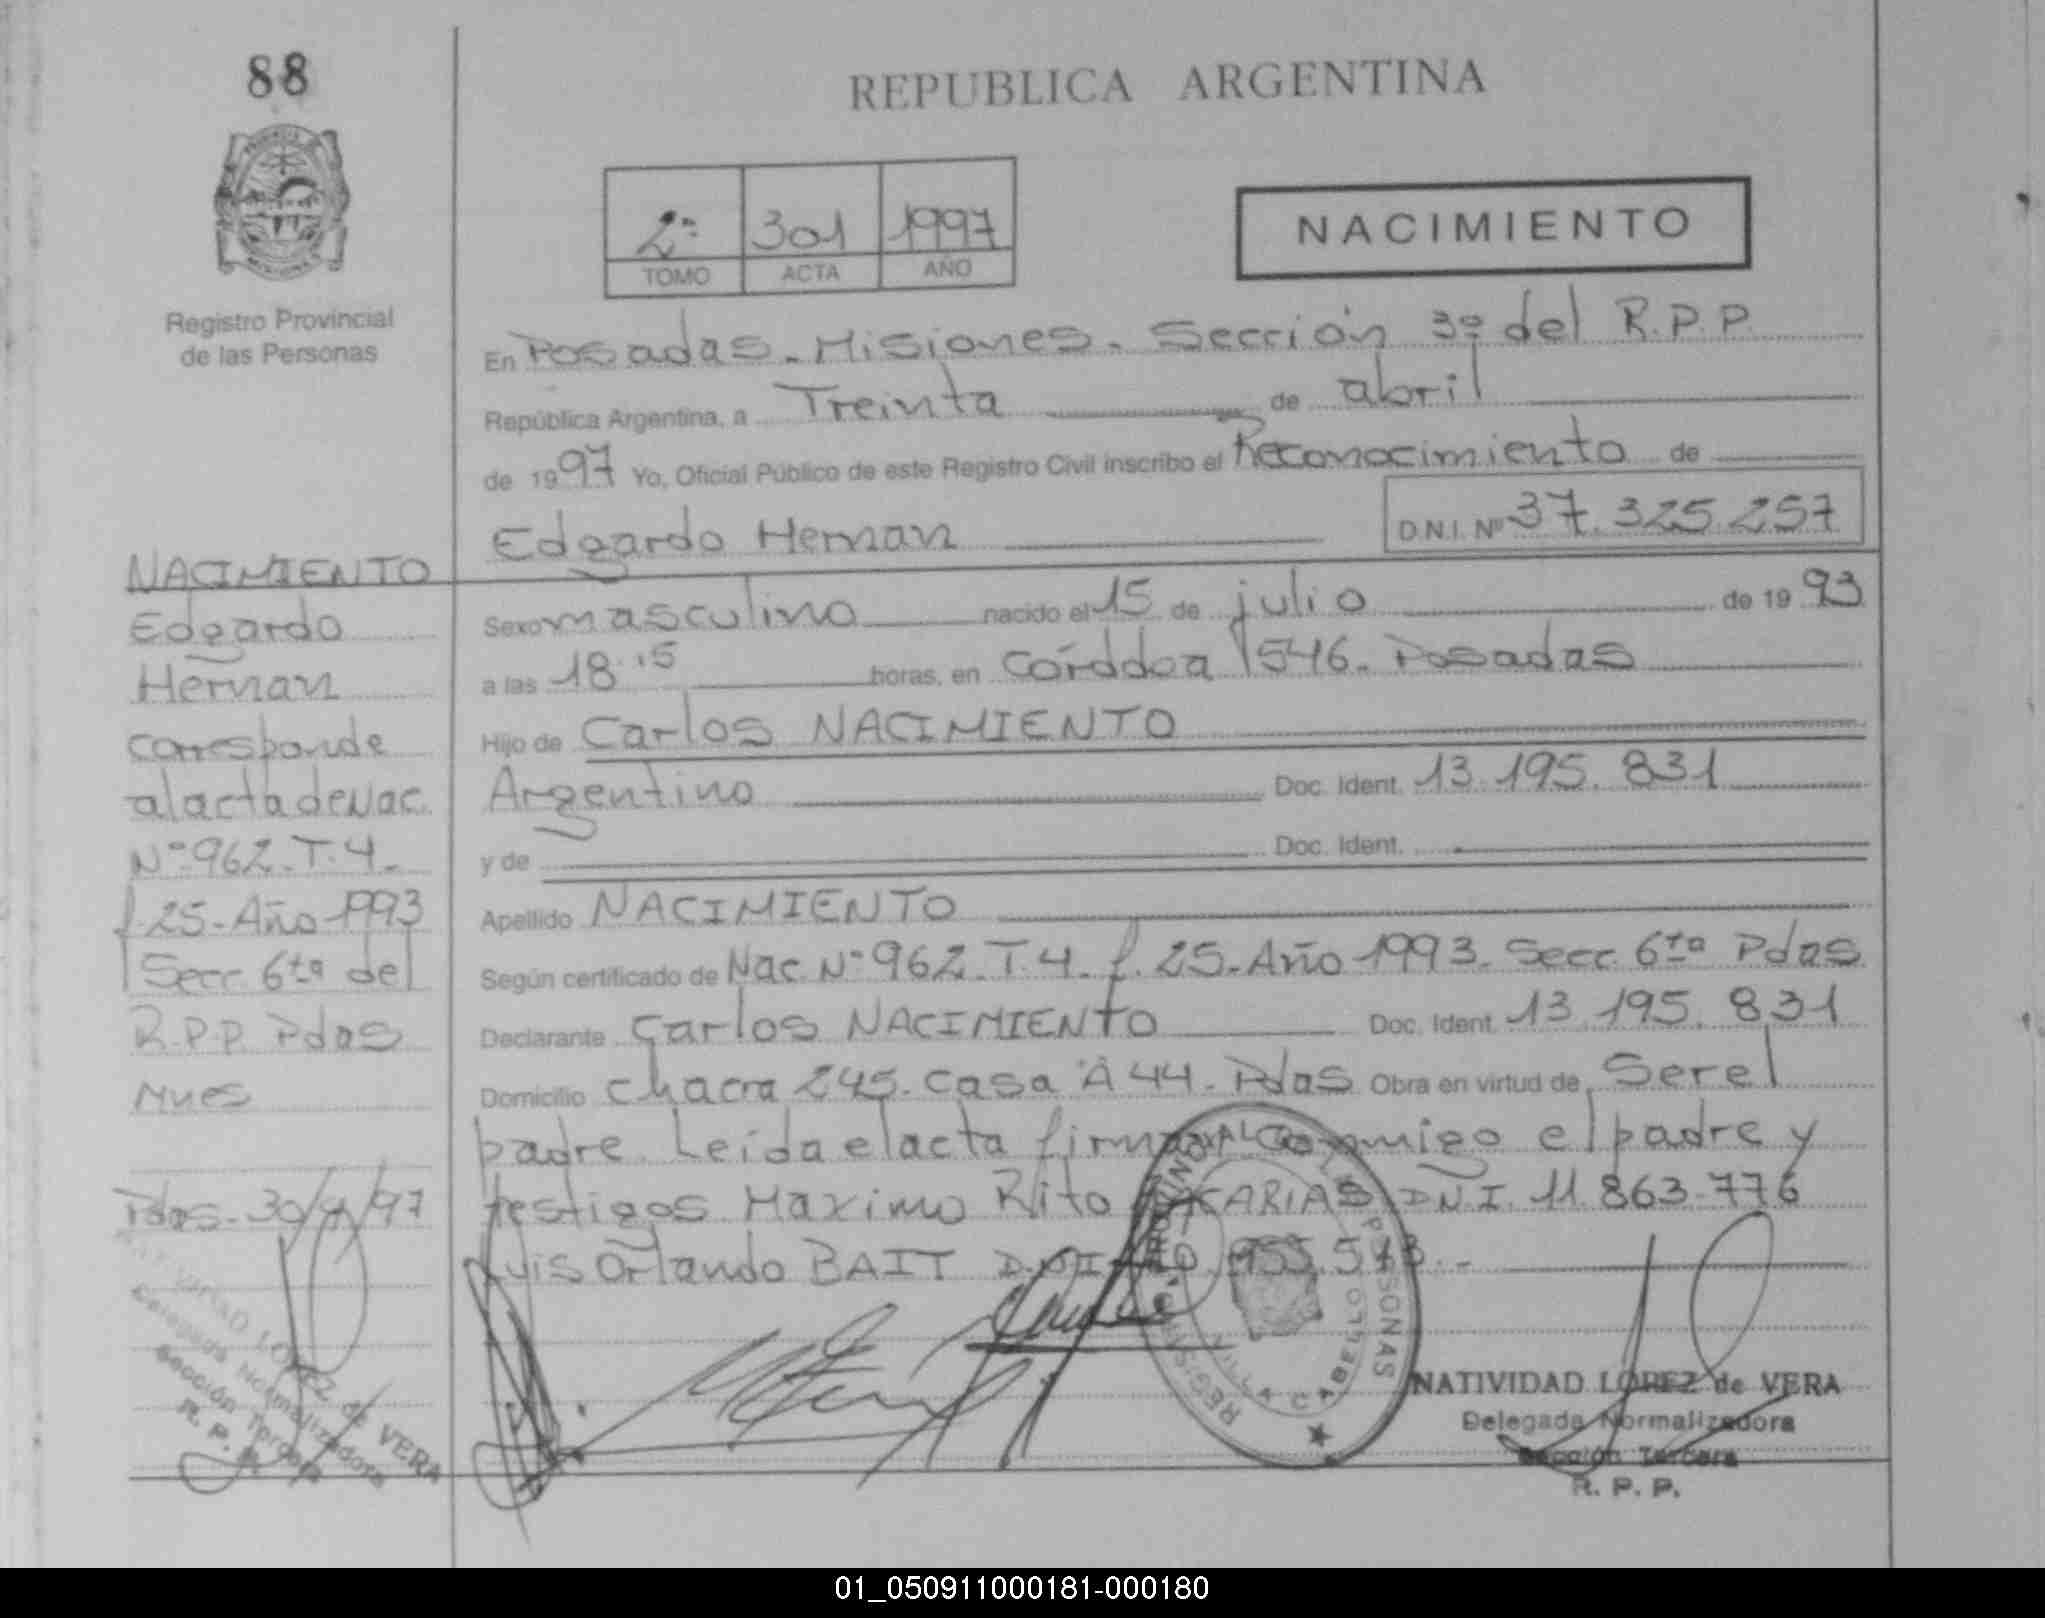 88
REPUBLICA ARGENTINA
2º 301 1997
TOMO ACTA AÑO
NACIMIENTO
Registro Provincial
de las Personas
En Posadas - Misiones - Sección 3º del R.P.P.
República Argentina, a Treinta de abril
de 1997 Yo, Oficial Público de este Registro Civil inscribo el Reconocimiento de
Edgardo Hernan D.N.I. Nº 37.325.257
Sexo masculino nacido el 15 de julio de 1993
a las 18.15 horas, en Córdoba 1546 - Posadas
Hijo de Carlos NACIMIENTO
Argentino Doc. Ident. 13.195.831
y de Doc. Ident.
Apellido NACIMIENTO
Según certificado de Nac. Nº 962 - T.4 - f. 25 - Año 1993 - Secc. 6ta Pdas
Declarante Carlos NACIMIENTO Doc. Ident. 13.195.831
Domicilio Chacra 245 - Casa "A 44 - Pdas Obra en virtud de Ser el
padre. Leída el acta firman conmigo el padre y
testigos Maximo Rito ACARIAS D.N.I. 11.863.776
Luis Orlando BAIT D.N.I. 955.573.-
NACIMIENTO
Edgardo
Hernan
corresponde
al acta de Nac.
Nº 962 - T.4 -
f. 25 - Año 1993
Secc. 6ta del
R.P.P. Pdas
Mnes
Pdas - 30/4/97
NATIVIDAD LOPEZ de VERA
Delegada Normalizadora
Sección Tercera
R. P. P.
VILLA CABELLO
PERSONAS
NATIVIDAD LOPEZ de VERA
Delegada Normalizadora
Sección Tercera
R. P. P.
01_050911000181-000180